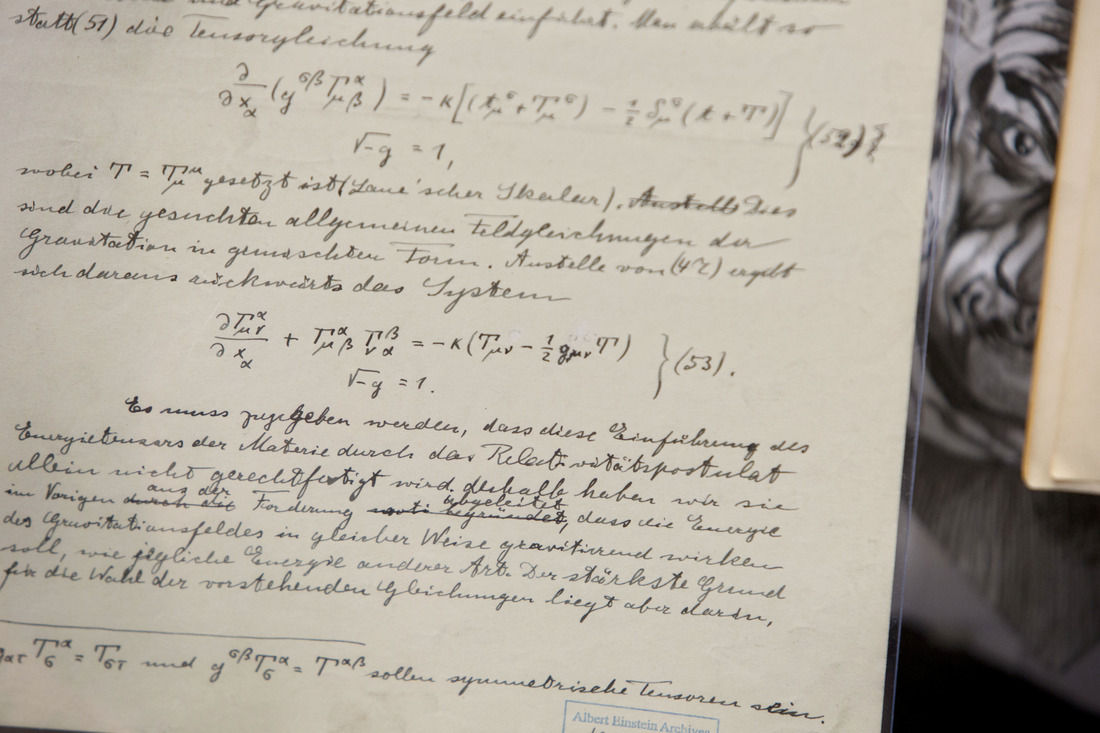 und Gravitationsfeld einführt. Man erhält so
statt (51) die Tensorgleichung
∂/∂x_α (g^{σβ} Γ^α_{μβ}) = -κ[(t^σ_μ + T^σ_μ) - 1/2 δ^σ_μ (t + T)] } (52)
√-g = 1,
wobei T = T^μ_μ gesetzt ist (Laue'scher Skalar). Anstelle Dies
sind die gesuchten allgemeinen Feldgleichungen der
Gravitation in gemischter Form. Anstelle von (47) ergibt
sich daraus rückwärts das System
∂Γ^α_{μν}/∂x_α + Γ^α_{μβ} Γ^β_{να} = -κ(T_{μν} - 1/2 g_{μν} T) } (53).
√-g = 1.
Es muss zugegeben werden, dass diese Einführung des
Energietensors der Materie durch das Relativitätspostulat
allein nicht gerechtfertigt wird, deshalb haben wir sie
im Vorigen durch die aus der Forderung begründet abgeleitet, dass die Energie
des Gravitationsfeldes in gleicher Weise gravitierend wirken
soll, wie jegliche Energie anderer Art. Der stärkste Grund
für die Wahl der vorstehenden Gleichungen liegt aber darin,
T^α_σ = T_{στ} und g^{σβ} T^α_σ = T^{αβ} sollen symmetrische Tensoren sein.
Albert Einstein Archives